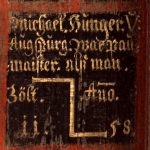 Michael Hunger. V
Augspurg. war pau
maister. alß man.
Zölt. Ano.
58